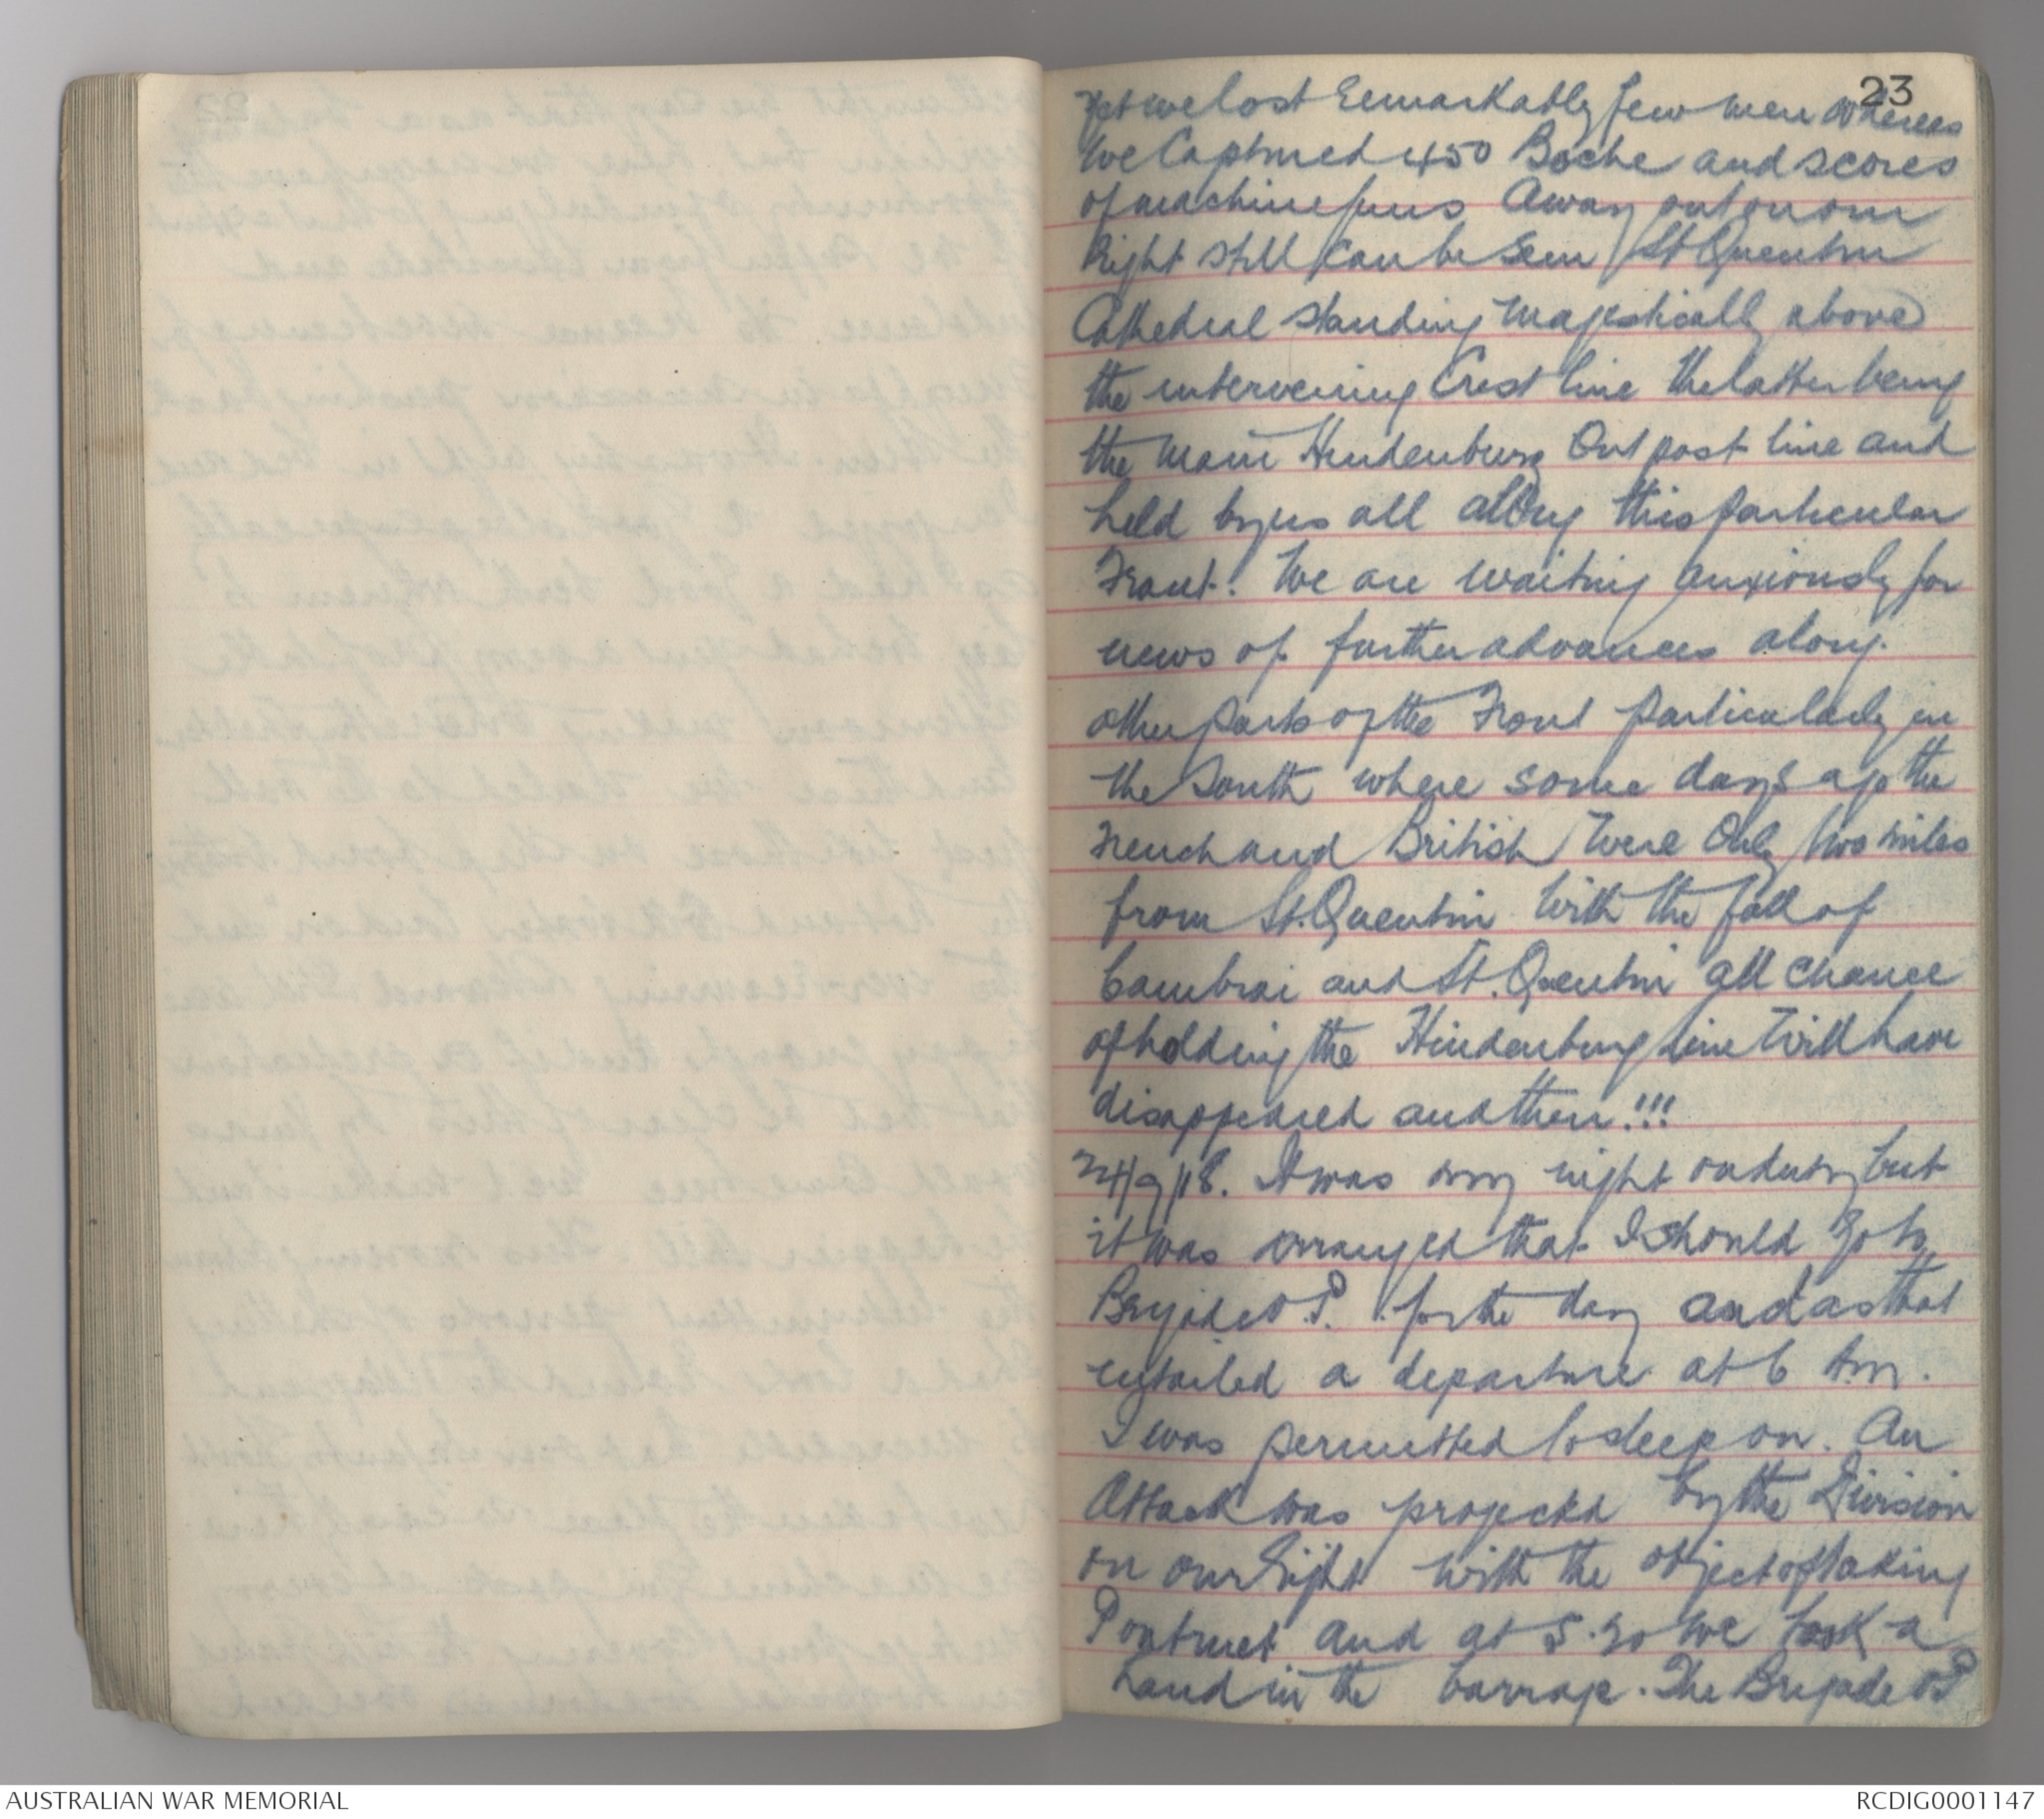 23
Yet we lost remarkably few men whereas
We Captured 450 Boche and scores
of machine guns Away out on our
Right still can be seen St Quentin
Cathedral standing majestically above
the intervening Crest line the latter being
the main Hindenburg Outpost line and
held by us all along this particular
Front. We are waiting anxiously for
news of further advances along
other parts of the Front particularly in
the South where some days ago the
French and British were Only two miles
from St. Quentin With the fall of
Cambrai and St. Quentin all chance
of holding the Hindenburg line will have
disappeared and then!!!
24/9/18. It was my night on duty but
it was arranged that I should go to
Brigade O.P. for the day and as that
entailed a departure at 6 A.m.
I was permitted to sleep on. An
Attack was projected by the Division
on our Right with the object of taking
Pontruet and at 5.30 We took a
hand in the barrage. The Brigade OP
AUSTRALIAN WAR MEMORIAL
RCDIG0001147